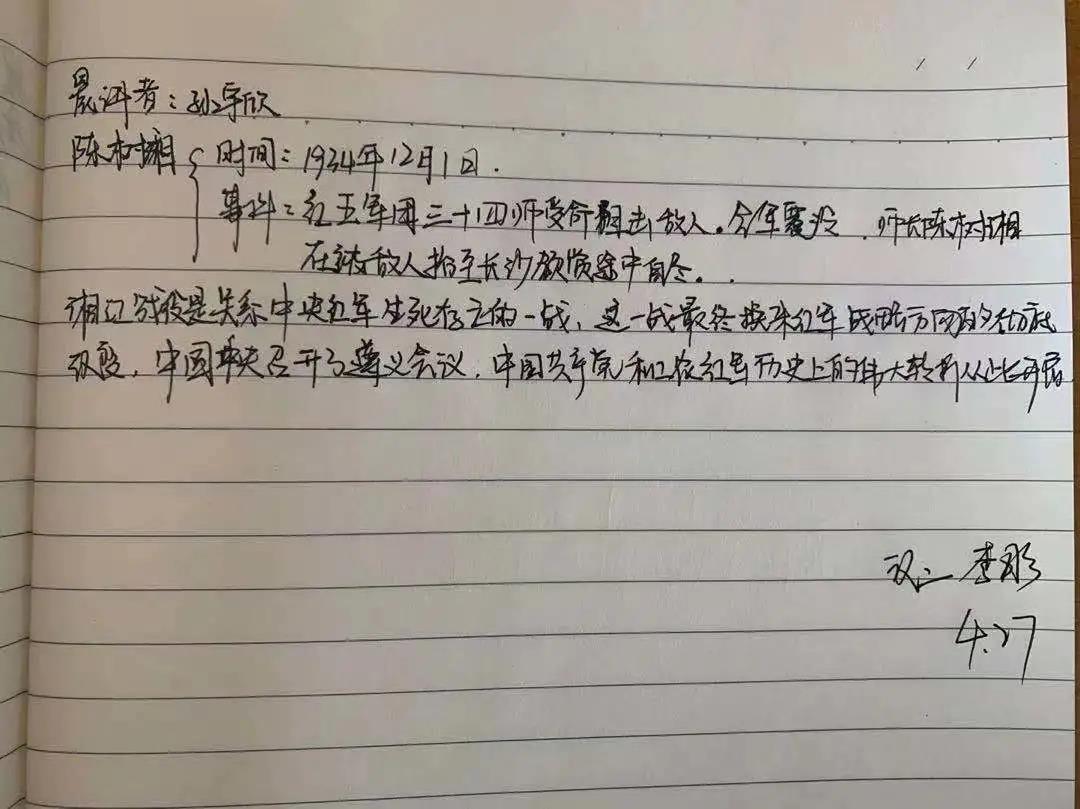 晨评者：孙宇欣
陈树湘 时间：1934年12月1日.
事件：红五军团三十四师受命阻击敌人。全军覆没. 师长陈树湘
在被敌人抬至长沙领赏途中自尽。
湘江战役是关系中央红军生死存亡的一战，这一战最终换来红军战略方向的
. 中国 召开了遵义会议. 中国共产党和工农红军历史上的伟大转折从此开启
李彤
4.27